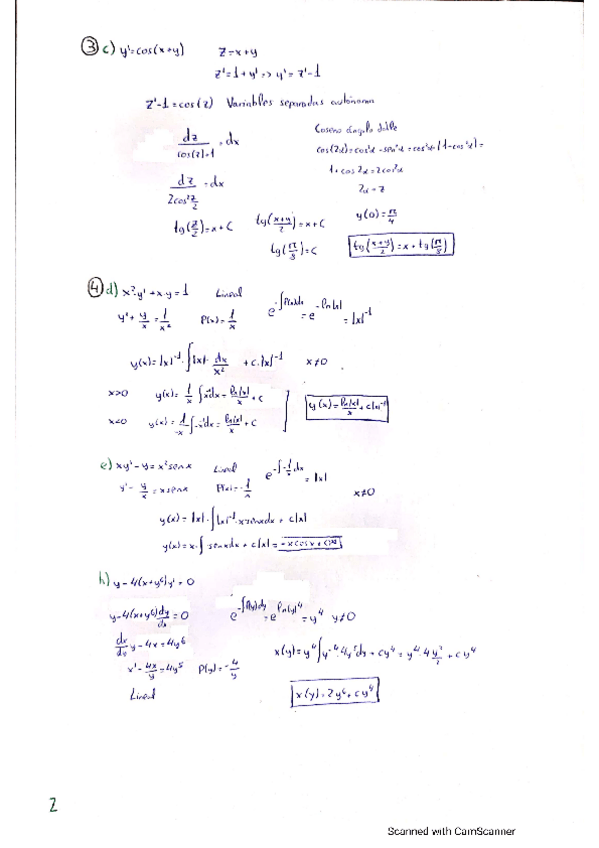 ③ c) y'=cos(x+y) z=x+y
z'=1+y' => y'=z'-1
z'-1=cos(z) Variables separadas autónoma
dz/(cos(z)+1) = dx
Coseno ángulo doble
cos(2α)=cos²α-sen²α=cos²α-(1-cos²α)=
1+cos2α=2cos²α
2α=z
dz/(2cos² z/2) = dx
tg(z/2)=x+C tg((x+y)/2)=x+C y(0)=π/4
tg(π/8)=C tg((x+y)/2)=x+tg(π/8)
④ d) x²·y'+x·y=1 Lineal e^(-∫P(x)dx) = e^(-ln|x|) = |x|⁻¹
y'+y/x=1/x² P(x)=1/x
y(x)=|x|⁻¹·∫|x|·dx/x² + c·|x|⁻¹ x≠0
x>0 y(x)=1/x ∫x⁻¹dx=ln|x|/x+c
x<0 y(x)=1/-x ∫-x⁻¹dx=ln|x|/x+c
y(x)=ln|x|/x+c|x|⁻¹
e) xy'-y=x²senx Lineal e^(-∫-1/x dx) = |x|
y'-y/x=xsenx P(x)=-1/x x≠0
y(x)=|x|·∫|x|⁻¹·xsenxdx+c|x|
y(x)=x·∫senxdx+c|x|=-xcosx+c|x|
h) y-4(x+y⁶)y'=0
y-4(x+y⁶)dy/dx=0 e^(-∫P(y)dy) = e^(ln|y|⁴) = y⁴ y≠0
dx/dy y-4x=4y⁶
x'-4x/y=4y⁵ P(y)=-4/y
x(y)=y⁴∫y⁻⁴·4y⁵dy+cy⁴=y⁴·4y²/2+cy⁴
Lineal x(y)=2y⁶+cy⁴
2
Scanned with CamScanner